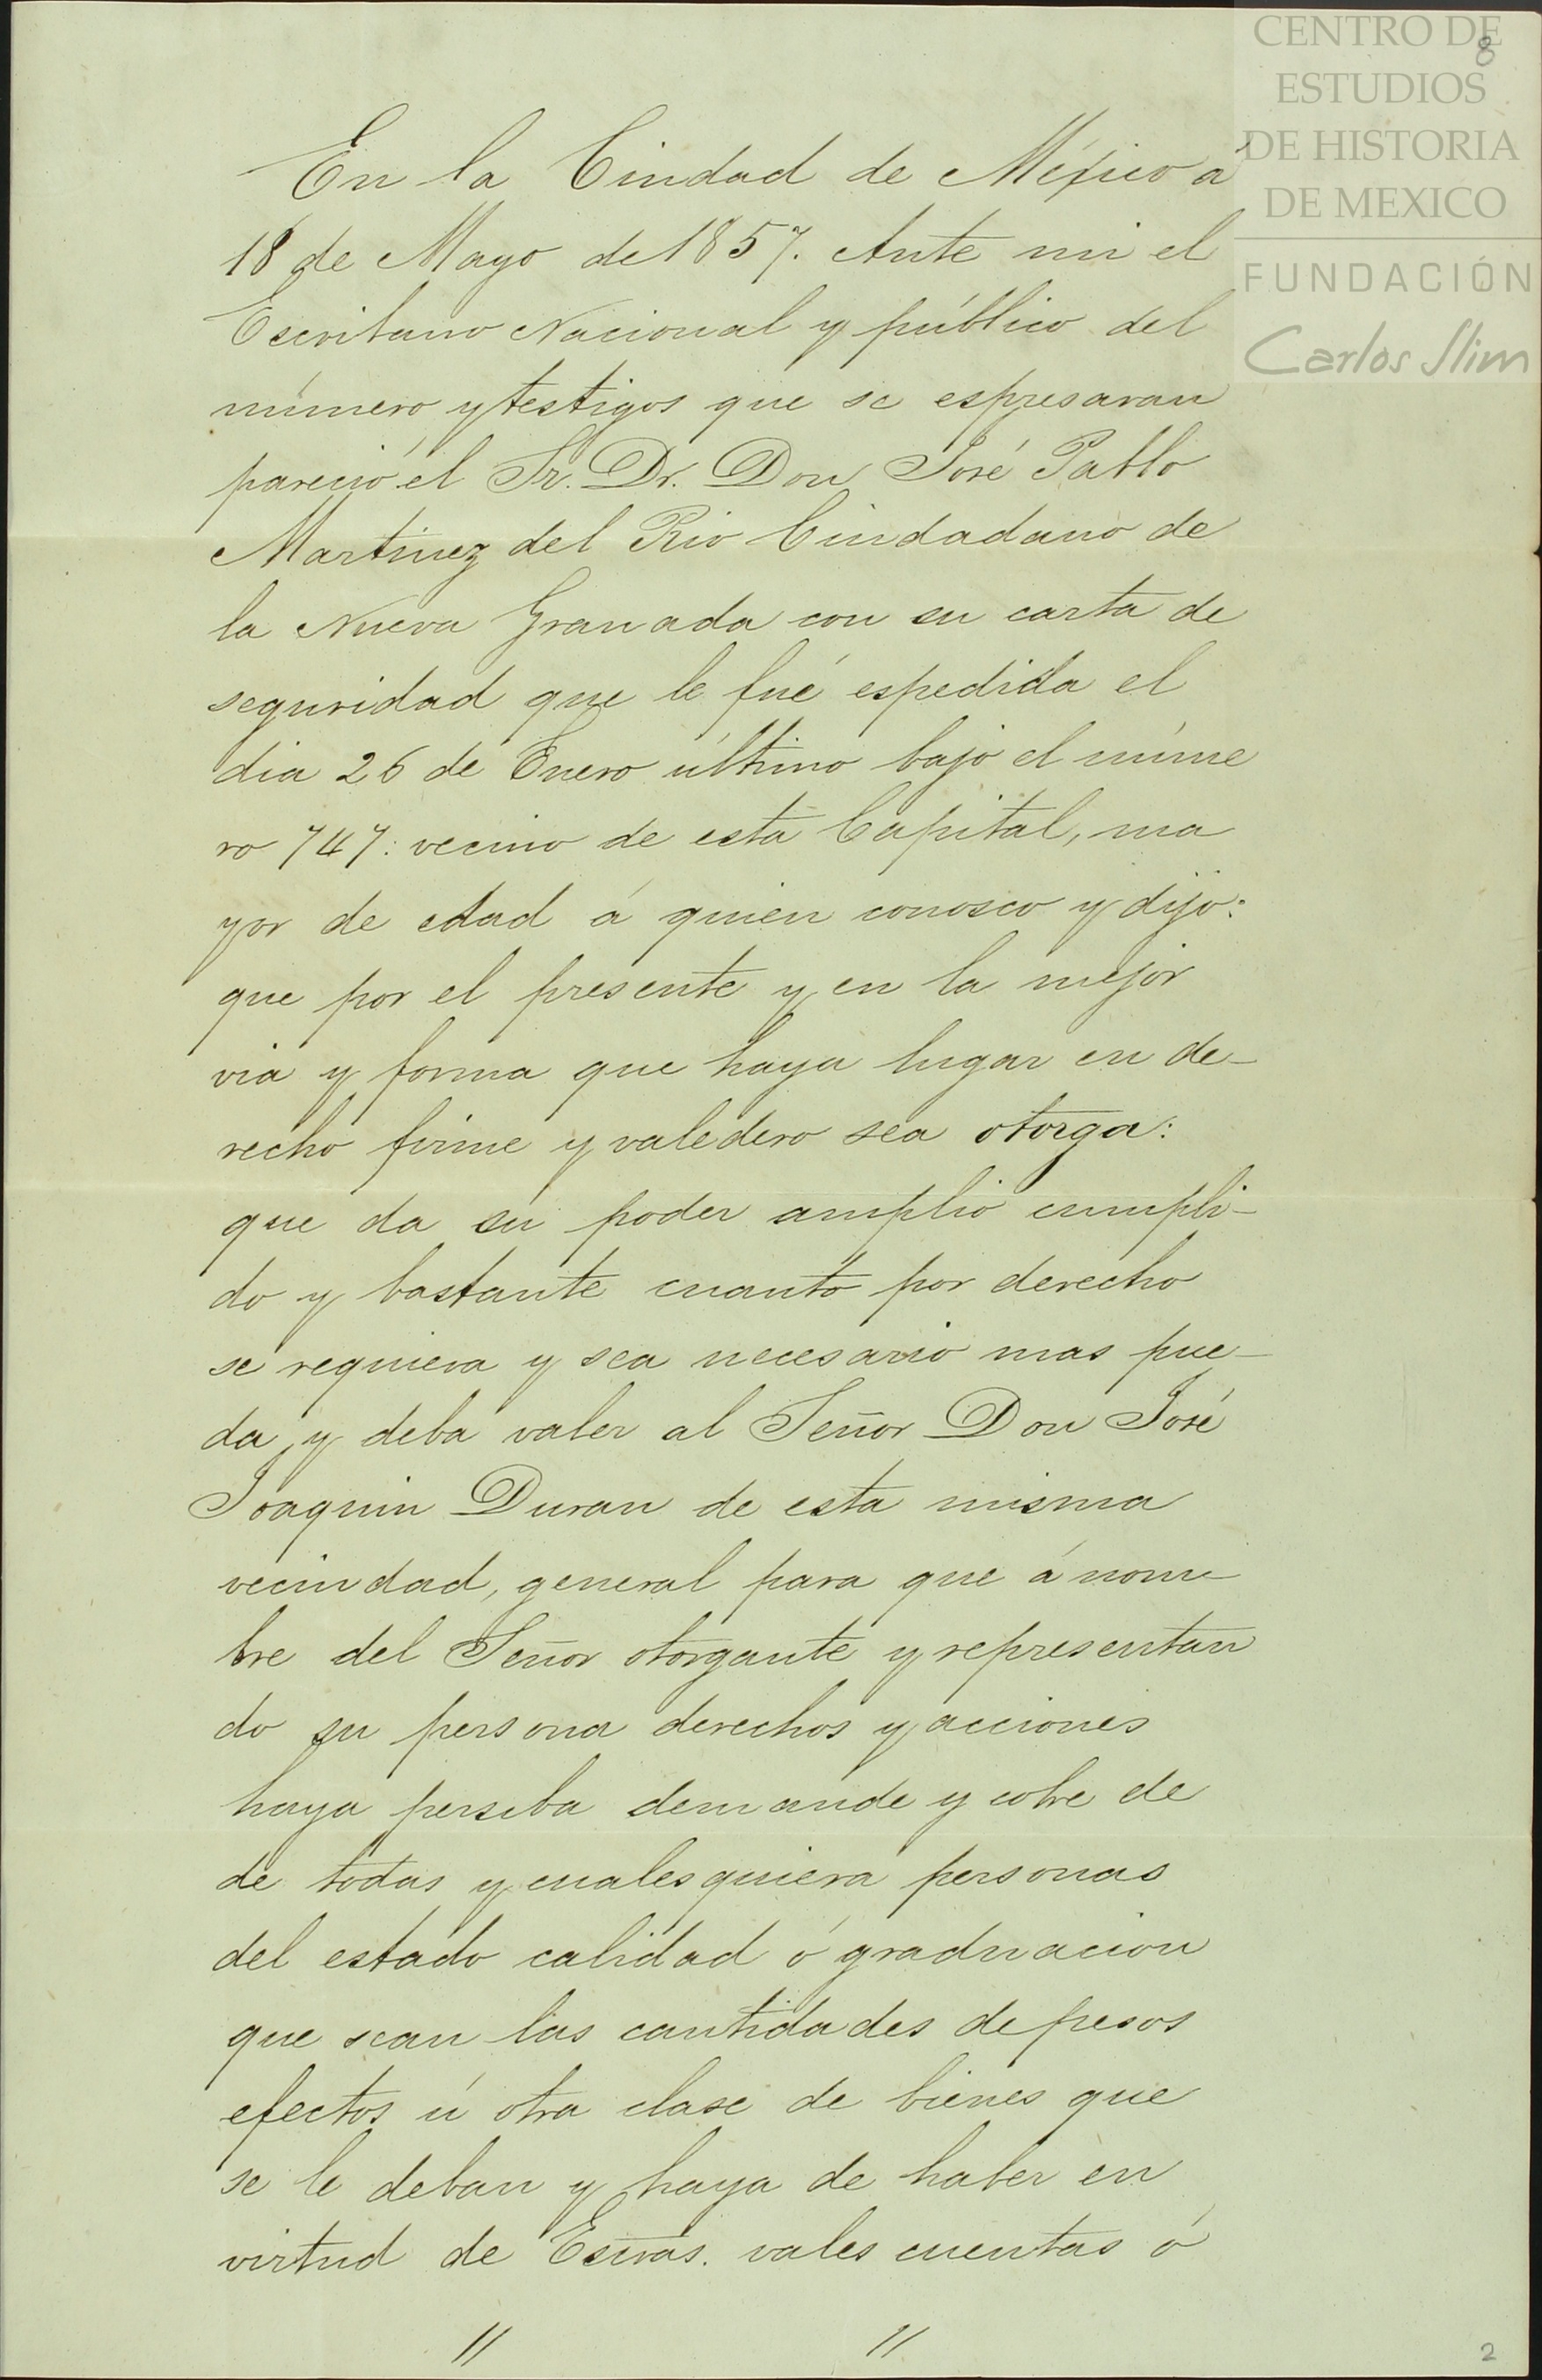 CENTRO DE
ESTUDIOS
DE HISTORIA
DE MEXICO
FUNDACIÓN
Carlos Slim
8
En la Ciudad de México a
18 de Mayo de 1857. Ante mi el
Escribano Nacional y público del
número y testigos que se espresaran
pareció el Sr. Dr. Don José Pablo
Martinez del Rio Ciudadano de
la Nueva Granada con su carta de
seguridad que le fué espedida el
dia 26 de Enero último bajo el núme
ro 747: vecino de esta Capital, ma
yor de edad á quien conosco y dijo:
que por el presente y en la mejor
via y forma que haya lugar en de-
recho firme y valedero sea otorga:
que da su poder amplio cumpli-
do y bastante cuanto por derecho
se requiera y sea necesario mas pue-
da, y deba valer al Señor Don José
Joaquin Duran de esta misma
vecindad, general para que á nom-
bre del Señor otorgante y representan
do su persona derechos y acciones
haya persiba demande y cobre de
de todas y cualesquiera personas
del estado calidad ó graduacion
que sean las cantidades de pesos
efectos ú otra clase de bienes que
se le deban y haya de haber en
virtud de Escras. vales cuentas ó
// //
2